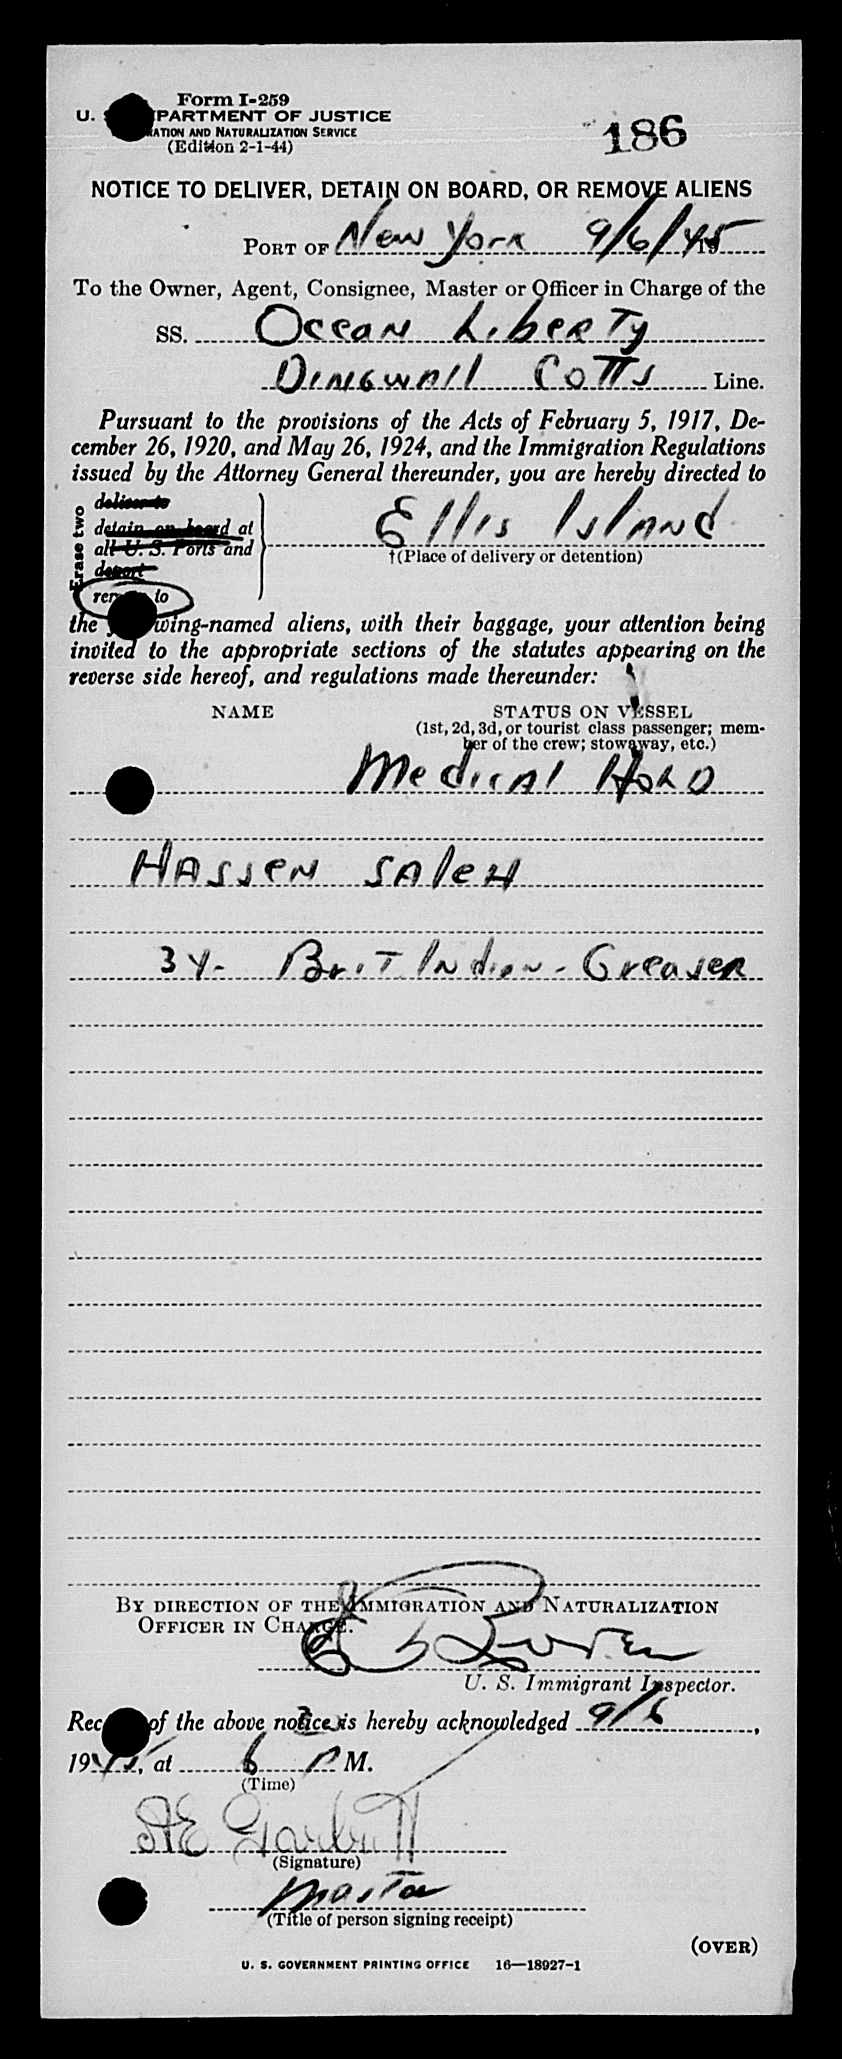 Form I-259
U. S. DEPARTMENT OF JUSTICE
IMMIGRATION AND NATURALIZATION SERVICE
(Edition 2-1-44)
186
NOTICE TO DELIVER, DETAIN ON BOARD, OR REMOVE ALIENS
PORT OF New York 9/6/45
To the Owner, Agent, Consignee, Master or Officer in Charge of the
SS. Ocean Liberty
Dingwall Cotts Line.
Pursuant to the provisions of the Acts of February 5, 1917, De-
cember 26, 1920, and May 26, 1924, and the Immigration Regulations
issued by the Attorney General thereunder, you are hereby directed to
Erase two
deliver to
detain on board at
all U. S. Ports and
deport
remove to
Ellis Island
†(Place of delivery or detention)
the following-named aliens, with their baggage, your attention being
invited to the appropriate sections of the statutes appearing on the
reverse side hereof, and regulations made thereunder:
NAME STATUS ON VESSEL
(1st, 2d, 3d, or tourist class passenger; mem-
ber of the crew; stowaway, etc.)
Medical Hold
Hassen Saleh
34 - Brit Indian - Greaser
BY DIRECTION OF THE IMMIGRATION AND NATURALIZATION
OFFICER IN CHARGE.
U. S. Immigrant Inspector.
Receipt of the above notice is hereby acknowledged 9/6,
1945, at 6 P M.
(Time)
(Signature)
Master
(Title of person signing receipt)
(OVER)
U. S. GOVERNMENT PRINTING OFFICE 16—18927-1